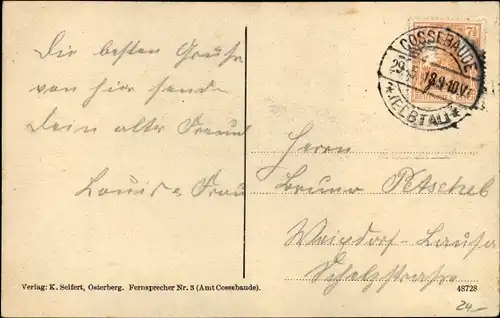 Die besten Grüße
von hier sendet
Dein alter Freund
Louis & Frau
COSSEBAUDE
29
18.9-10V.
*(ELBTAL)*
7½
Herrn
Bruno Petschel
Weixdorf-Lausa
Schulstrasse
Verlag: K. Seifert, Osterberg. Fernsprecher Nr. 3 (Amt Cossebaude).
48728
24.-